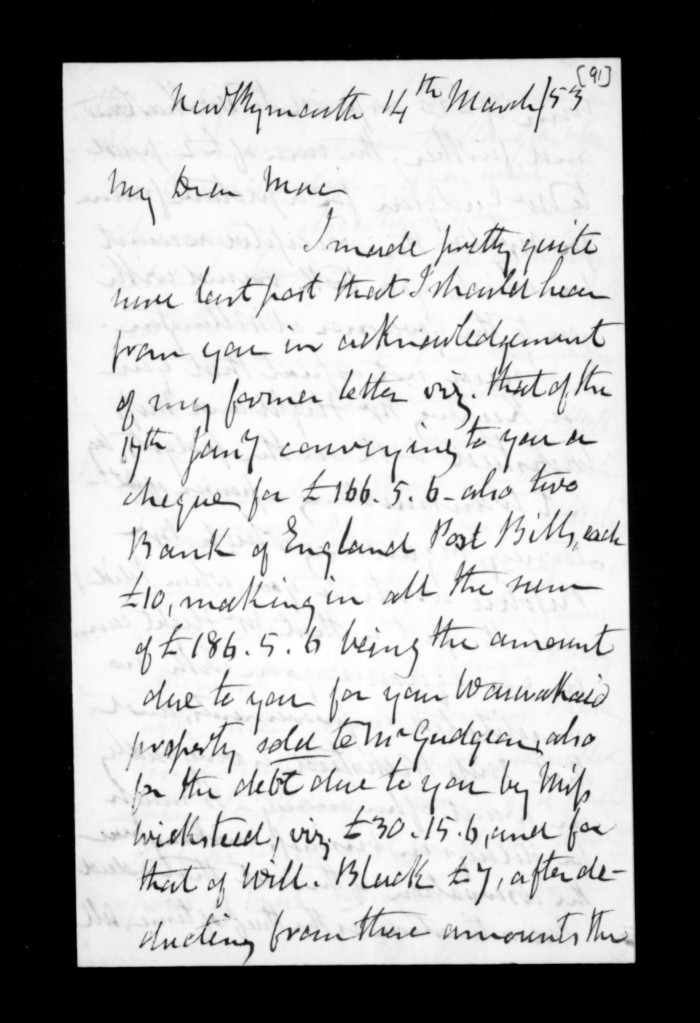 [91]
New Plymouth 14th March/53
My Dear Mac
I made pretty quite
sure last post that I should hear
from you in acknowledgement
of my former letter viz. that of the
17th Jany conveying to you a
cheque for £166.5.6 - also two
Bank of England Post Bills, each
£10, making in all the sum
of £186.5.6 being the amount
due to you for your
property sold to Mr Gudgeon, also
for the debt due to you by Miss
Wicksteed, viz. £30.15.6, and for
that of Will. Black £7, after de-
ducting from these amounts the